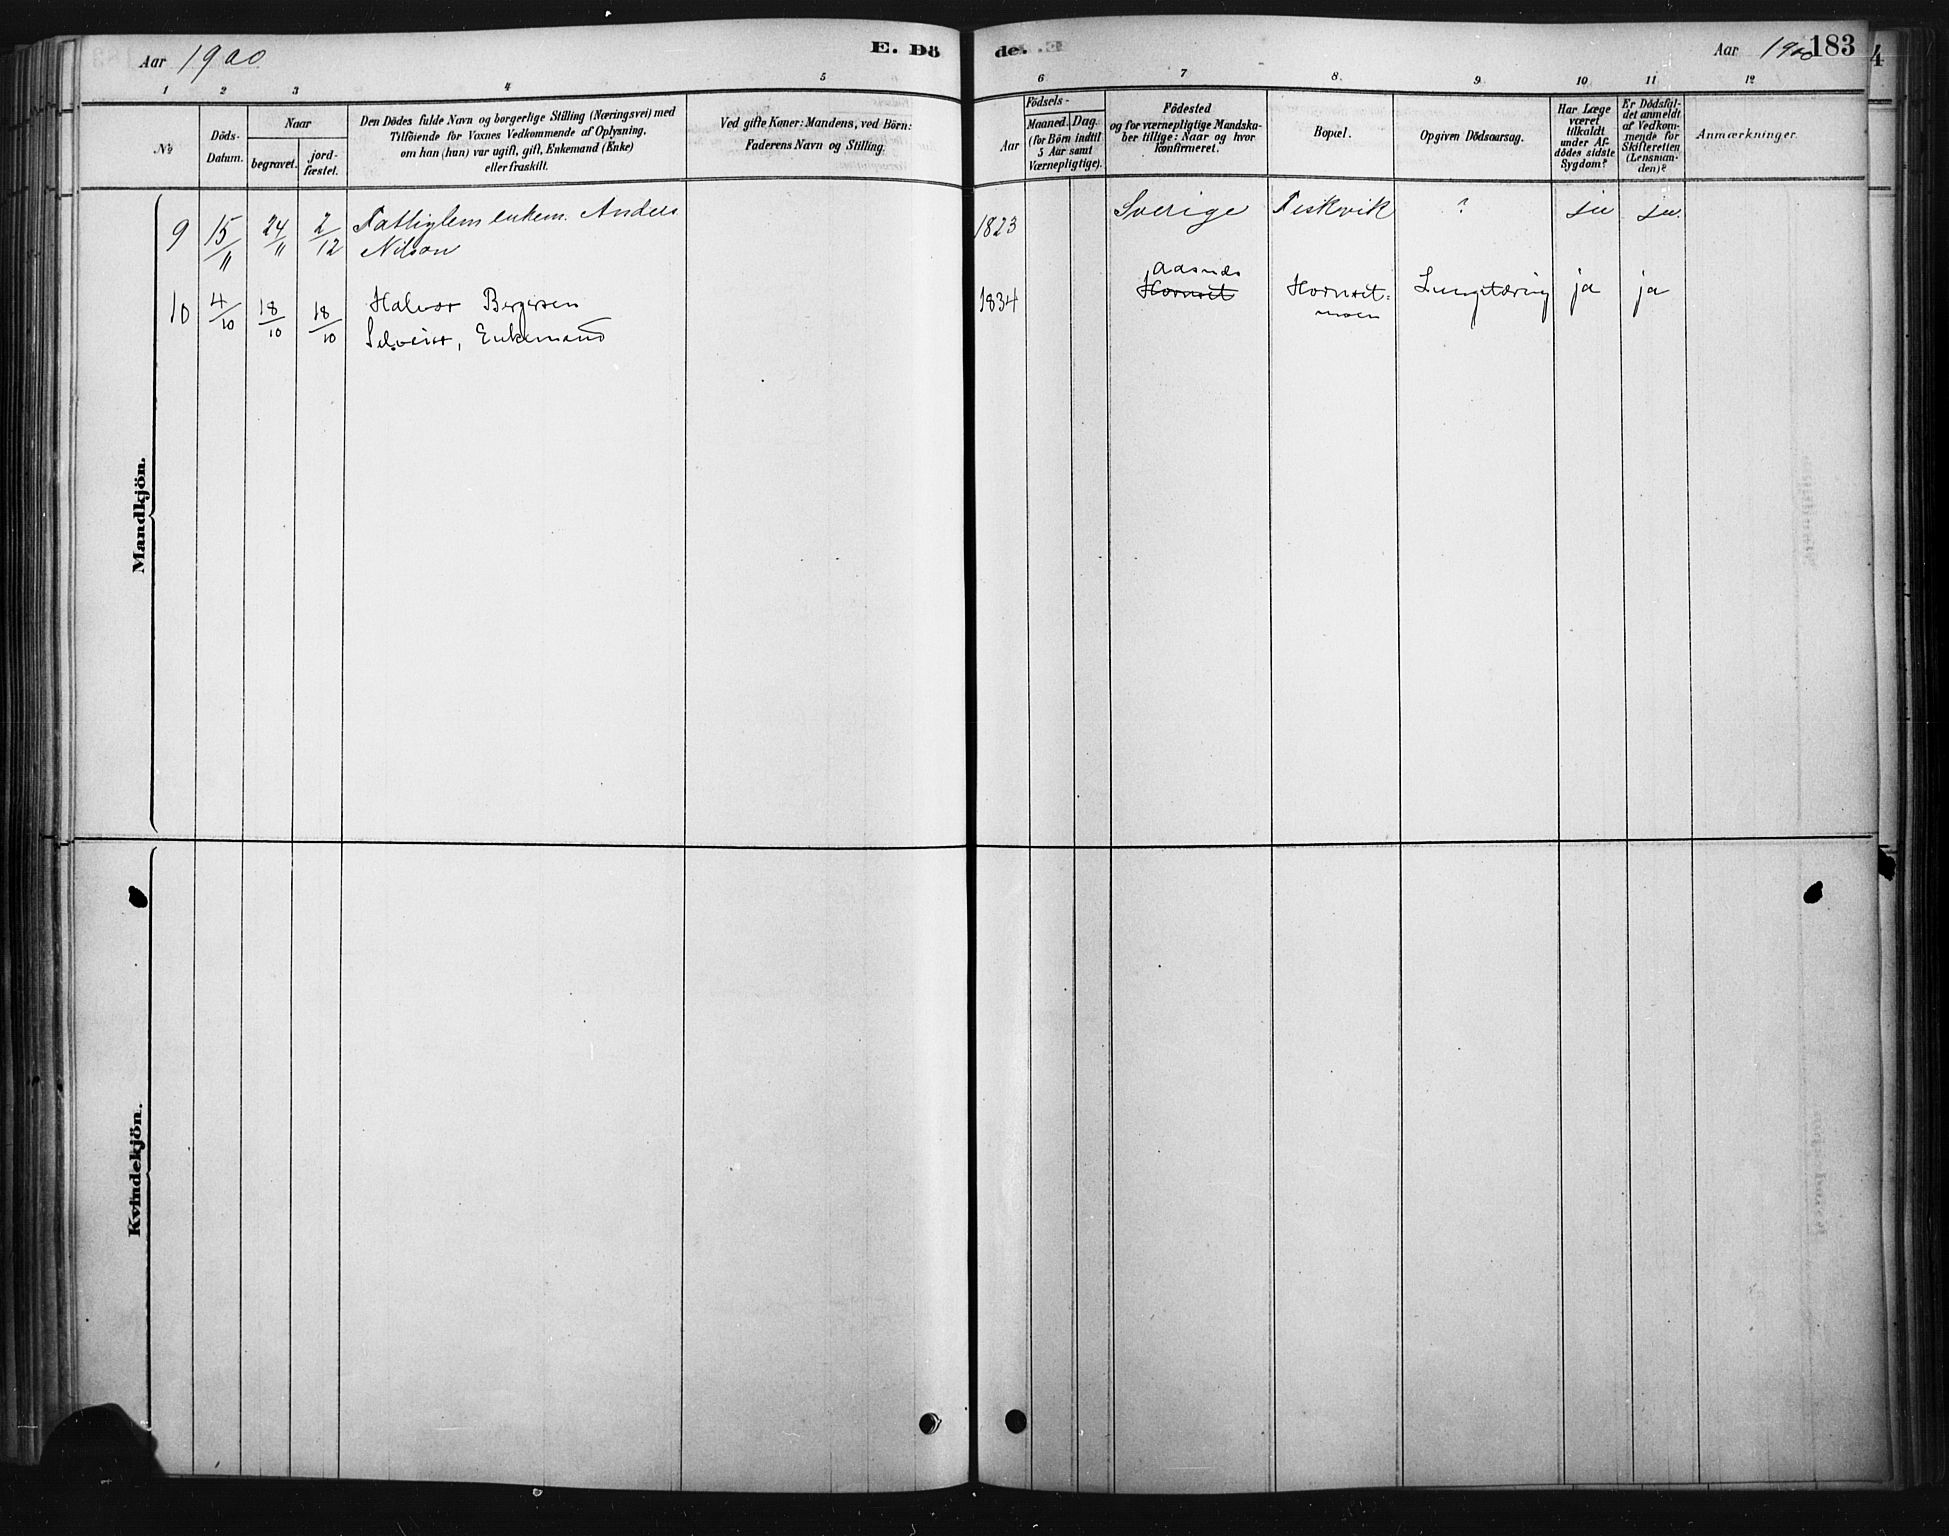 Aar 1900
E. Dö
de.
Aar 1900 183
4
1 2 3 4 5
6 7 8. 9. 10 11 12
№
Döds-
Datum.
Naar
begravet.
jord-
fæstet.
Den Dödes fulde Navn og borgerlige Stilling (Næringsvei) med
Tilföiende for Voxnes Vedkommende af Oplysning,
om han (hun) var ugift, gift, Enkemand (Enke)
eller fraskilt.
Ved gifte Koner: Mandens, ved Börn:
Faderens Navn og Stilling.
Aar
Födsels-
Maaned. Dag.
(for Börn indtil
5 Aar samt
Værnepligtige).
Födested
og for værnepligtige Mandska-
ber tillige: Naar og hvor
konfirmeret.
Bopæl.
Opgiven Dödsaarsag.
Har Læge
været
tilkaldt
under Af-
dödes sidste
Sygdom?
Er Dödsfal-
det anmeldt
af Vedkom-
mende for
Skifteretten
(Lensman-
den)?
Anmærkninger.
Mandkjön.
9 15/11 24/11 2/12 Fattiglem enkem. Anders
Nilson
1823 Sverige Fiskvik ? ja ja.
10 4/10 18/10 18/10 Halvor Bergersen
Selveier, Enkemand
1834 Aasnes
Hornset Hornset-
moen
Lungetæring ja ja
Kvindekjön.